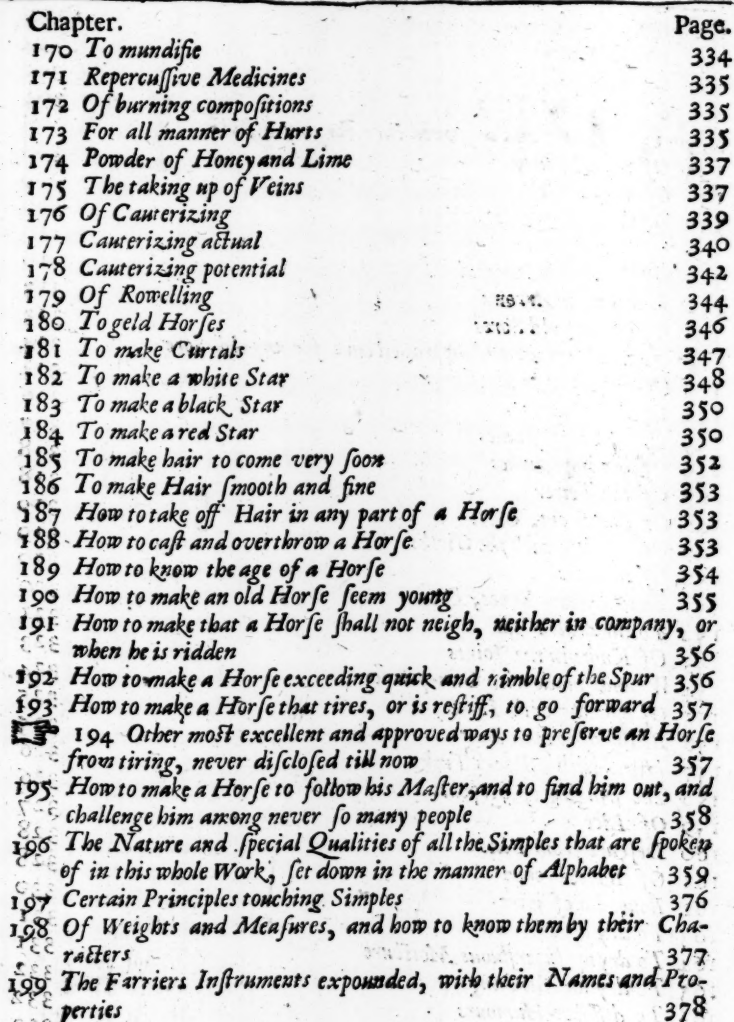 Chapter. Page.
170 To mundifie 334
171 Repercuſſive Medicines 335
172 Of burning compoſitions 335
173 For all manner of Hurts 335
174 Powder of Honey and Lime 337
175 The taking up of Veins 337
176 Of Cauterizing 339
177 Cauterizing actual 340
178 Cauterizing potential 342
179 Of Rowelling 344
180 To geld Horſes 346
181 To make Curtals 347
182 To make a white Star 348
183 To make a black Star 350
184 To make a red Star 350
185 To make hair to come very ſoon 352
186 To make Hair ſmooth and fine 353
187 How to take off Hair in any part of a Horſe 353
188 How to caſt and overthrow a Horſe 353
189 How to know the age of a Horſe 354
190 How to make an old Horſe ſeem young 355
191 How to make that a Horſe ſhall not neigh, neither in company, or
when he is ridden 356
192 How to make a Horſe exceeding quick and nimble of the Spur 356
193 How to make a Horſe that tires, or is reſtiff, to go forward 357
☞ 194 Other moſt excellent and approved ways to preſerve an Horſe
from tiring, never diſcloſed till now 357
195 How to make a Horſe to follow his Maſter, and to find him out, and
challenge him among never ſo many people 358
196 The Nature and ſpecial Qualities of all the Simples that are ſpoken
of in this whole Work, ſet down in the manner of Alphabet 359
197 Certain Principles touching Simples 376
198 Of Weights and Meaſures, and how to know them by their Cha-
racters 377
199 The Farriers Inſtruments expounded, with their Names and Pro-
perties 378